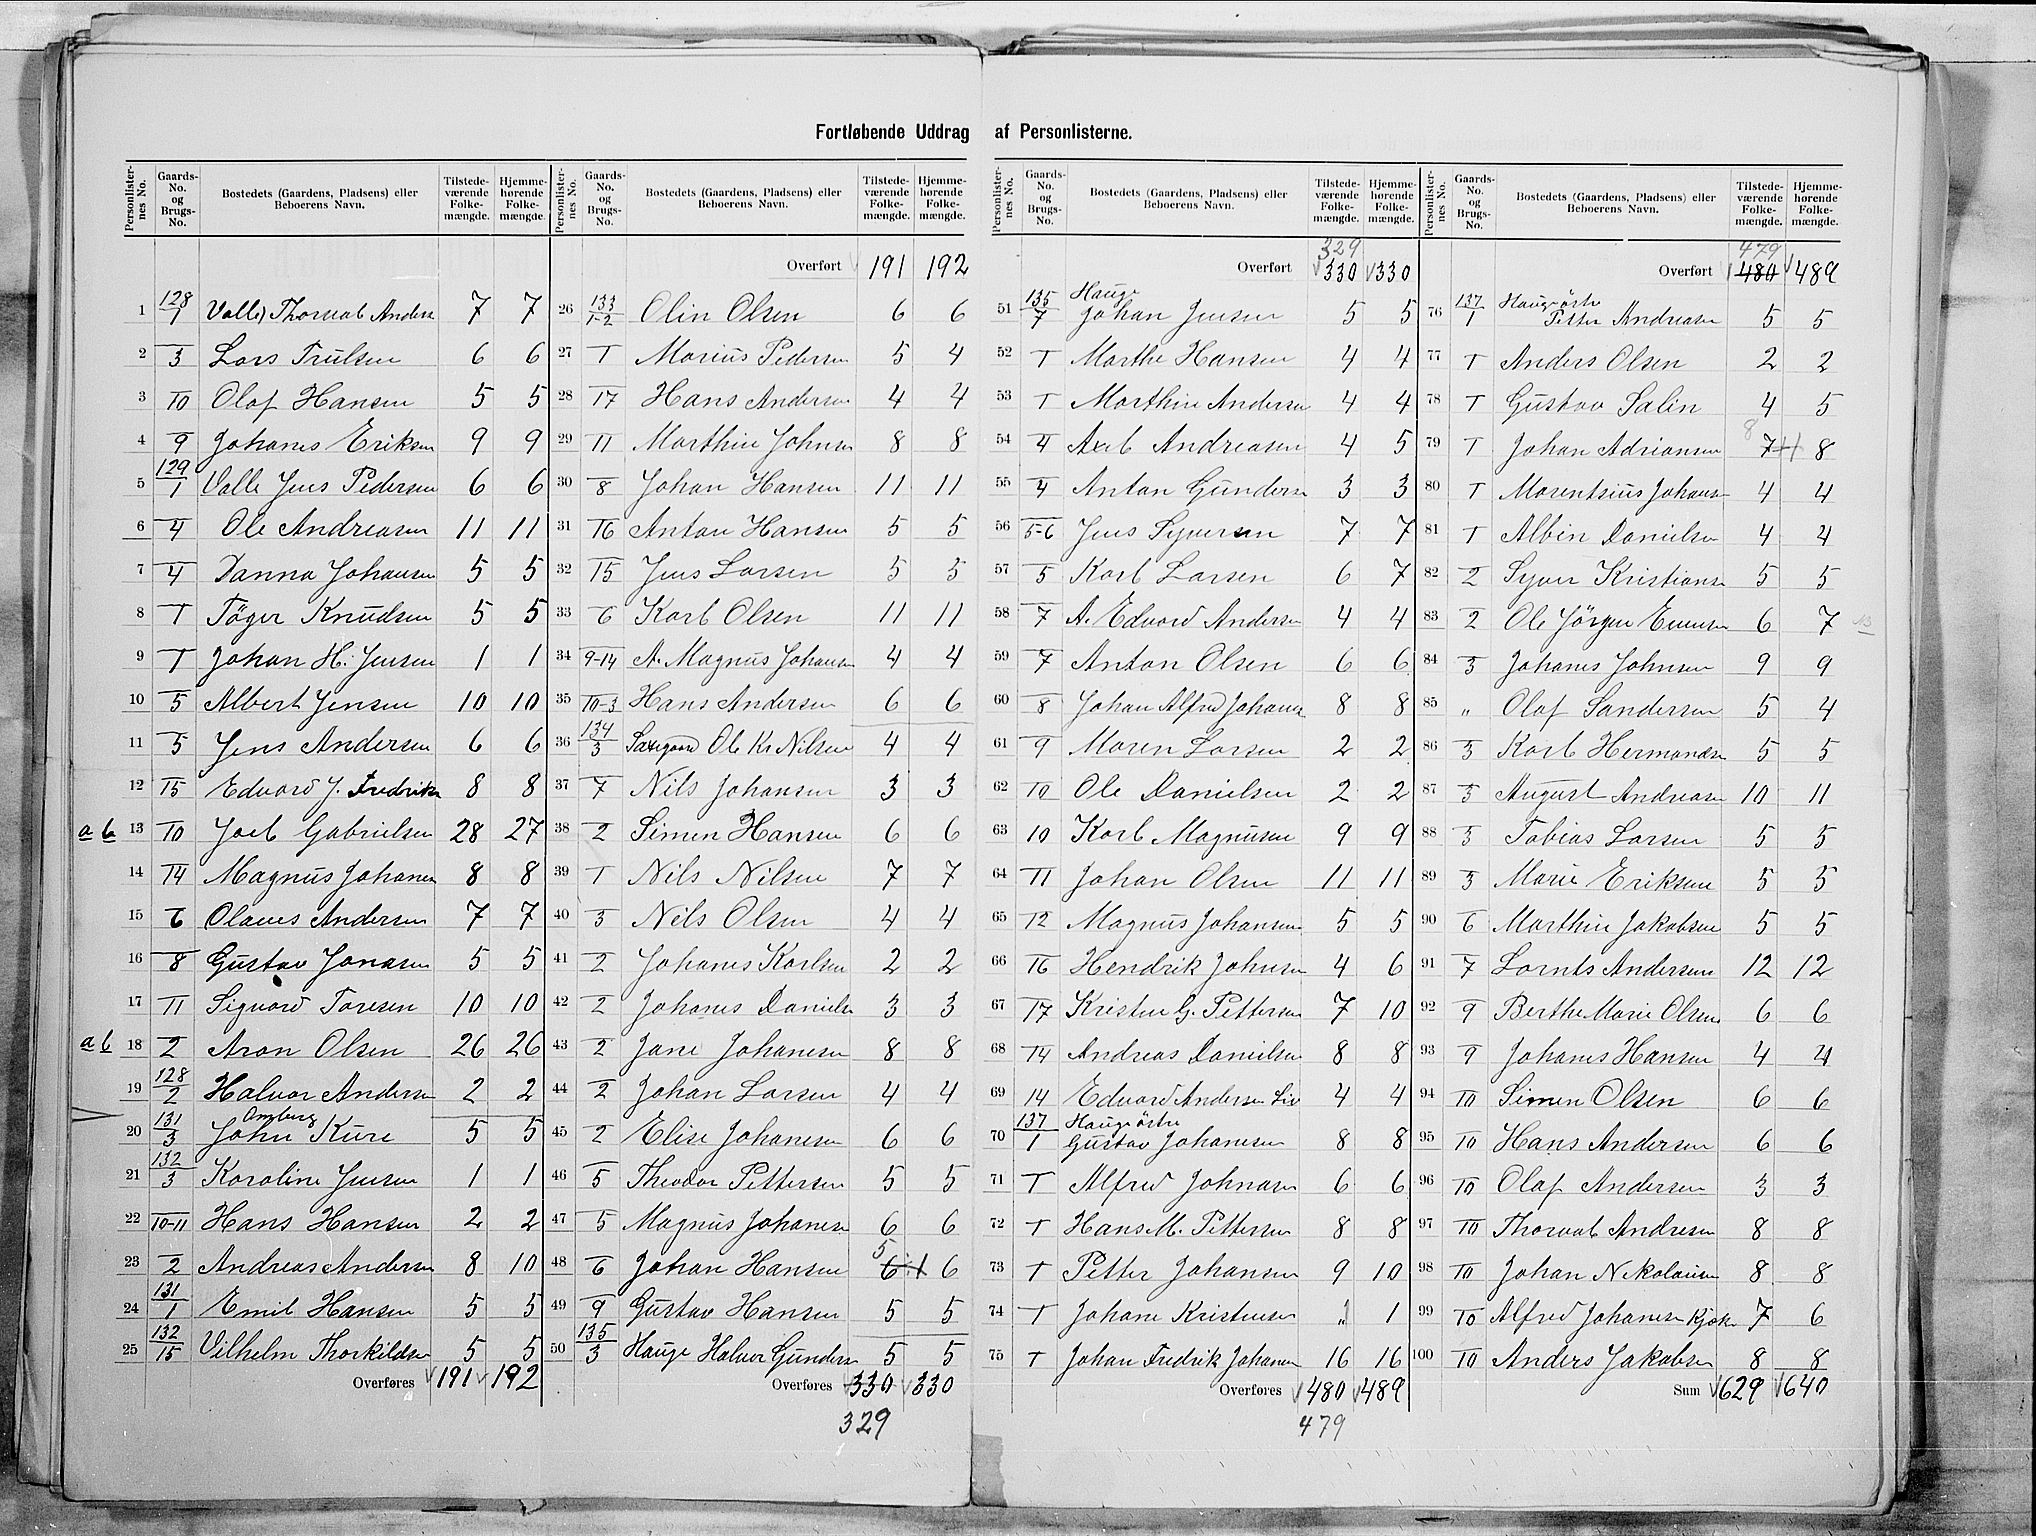 Fortløbende Uddrag af Personlisterne.
Personlister-nes No. Gaards-No. og Brugs-No. Bostedets (Gaardens, Pladsens) eller Beboerens Navn. Tilstede-værende Folke-mængde. Hjemme-hørende Folke-mængde.
1 128/1 Valle Thorvat Anders 7 7
2 3 Lars Trulsen 6 6
3 10 Olaf Hansen 5 5
4 9 Johans Eriksen 9 9
5 129/1 Valle Jens Pedersen 6 6
6 4 Ole Andreasen 11 11
7 4 Danna Johansen 5 5
8 1 Töger Knudsen 5 5
9 1 Johan H. Jensen 1 1
10 5 Albert Jensen 10 10
11 5 Jens Andersen 6 6
12 15 Edvard J. Fredriks 8 8
a b 13 10 Joel Gabrielsen 28 27
14 14 Magnus Johanes 8 8
15 6 Olaves Andersen 7 7
16 8 Gustav Jonasen 5 5
17 11 Sigvard Toresen 10 10
a b 18 2 Aron Olsen 26 26
19 128/2 Halvor Andersen 2 2
20 131/3 Omberg John Kure 5 5
21 132/3 Karoline Jensen 1 1
22 10-11 Hans Hansen 2 2
23 2 Andreas Andersen 8 10
24 131/1 Emil Hansen 5 5
25 132/15 Vilhelm Thorkildsen 5 5
Overføres 191 192
Personlister-nes No. Gaards-No. og Brugs-No. Bostedets (Gaardens, Pladsens) eller Beboerens Navn. Tilstede-værende Folke-mængde. Hjemme-hørende Folke-mængde.
Overført 191 192
26 133/1-2 Olin Olsen 6 6
27 1 Marius Pedersen 5 4
28 17 Hans Andersen 4 4
29 11 Marthin Johnsen 8 8
30 8 Johan Hansen 11 11
31 16 Anton Hansen 5 5
32 15 Jens Larsen 5 5
33 6 Karl Olsen 11 11
34 9-14 A. Magnus Johansen 4 4
35 10-3 Hans Andersen 6 6
36 134/3 Saxegaard Ole Kr Nilsen 4 4
37 7 Nils Johansen 3 3
38 2 Simen Hansen 6 6
39 1 Nils Nilsen 7 7
40 3 Nils Olsen 4 4
41 2 Johanes Karlsen 2 2
42 2 Johanes Danielsen 3 3
43 2 Jane Johanesen 8 8
44 2 Johan Larsen 4 4
45 2 Elise Johanesen 6 6
46 5 Theodor Pettersen 5 5
47 5 Magnus Johanesen 6 6
48 6 Johan Hansen 5 6 ÷1 6
49 9 Gustav Hansen 5 5
50 135/3 Hauge Halvor Gunders 5 5
Overføres 330 330
329
Personlister-nes No. Gaards-No. og Brugs-No. Bostedets (Gaardens, Pladsens) eller Beboerens Navn. Tilstede-værende Folke-mængde. Hjemme-hørende Folke-mængde.
329
Overført 330 330
51 135/7 Hauge Johan Jensen 5 5
52 1 Marthe Hansen 4 4
53 1 Marthin Andersen 4 4
54 4 Axel Andreasen 4 5
55 4 Anton Gunderse 3 3
56 5-6 Jens Syversen 7 7
57 5 Karl Larsen 6 7
58 7 A. Edvard Andersen 4 4
59 7 Anton Olsen 6 6
60 8 Johan Alfred Johanes 8 8
61 9 Maren Larsen 2 2
62 10 Ole Danielsen 2 2
63 10 Karl Magnusen 9 9
64 11 Johan Olsen 11 11
65 12 Magnus Johansen 5 5
66 16 Hendrik Johnsen 4 6
67 17 Kristen G. Pettersen 7 10
68 14 Andreas Danielsen 8 8
69 14 Edvard Andersen Liv 4 4
70 137/1 Haugeöstre Gustav Johanesen 8 8
71 1 Alfred Johnasen 6 6
72 1 Hans M. Pettersen 8 8
73 1 Petter Johansen 9 10
74 1 Johane Kristensen „ 1
75 1 Johan Fredrik Johanes 16 16
Overføres 480 489
479
Personlister-nes No. Gaards-No. og Brugs-No. Bostedets (Gaardens, Pladsens) eller Beboerens Navn. Tilstede-værende Folke-mængde. Hjemme-hørende Folke-mængde.
479
Overført 480 489
76 137/1 Haugeöstre Petter Andreasen 5 5
77 1 Anders Olsen 2 2
78 1 Gustav Salin 4 5
79 1 Johan Adriansen 8 7+1 8
80 1 Marentsius Johans 4 4
81 1 Albin Danielsen 4 4
82 2 Syver Kristians 5 5
83 2 Ole Jörgen Evensen 6 7
84 3 Johanes Johnsen 9 9
85 „ Olaf Sandersen 5 4
86 3 Karl Hermandsen 5 5
87 3 August Andreasen 10 11
88 3 Tobias Larsen 5 5
89 3 Marie Eriksen 5 5
90 6 Marthin Jakobsen 5 5
91 7 Lornts Andersen 12 12
92 9 Berthe Marie Olsen 6 6
93 9 Johanes Hansen 4 4
94 10 Simen Olsen 6 6
95 10 Hans Andersen 6 6
96 10 Olaf Andersen 3 3
97 10 Thorvat Andresen 8 8
98 10 Johan Nikolaisen 8 8
99 10 Alfred Johanesen Kjøk 7 6
100 10 Anders Jakobsen 8 8
Sum 629 640